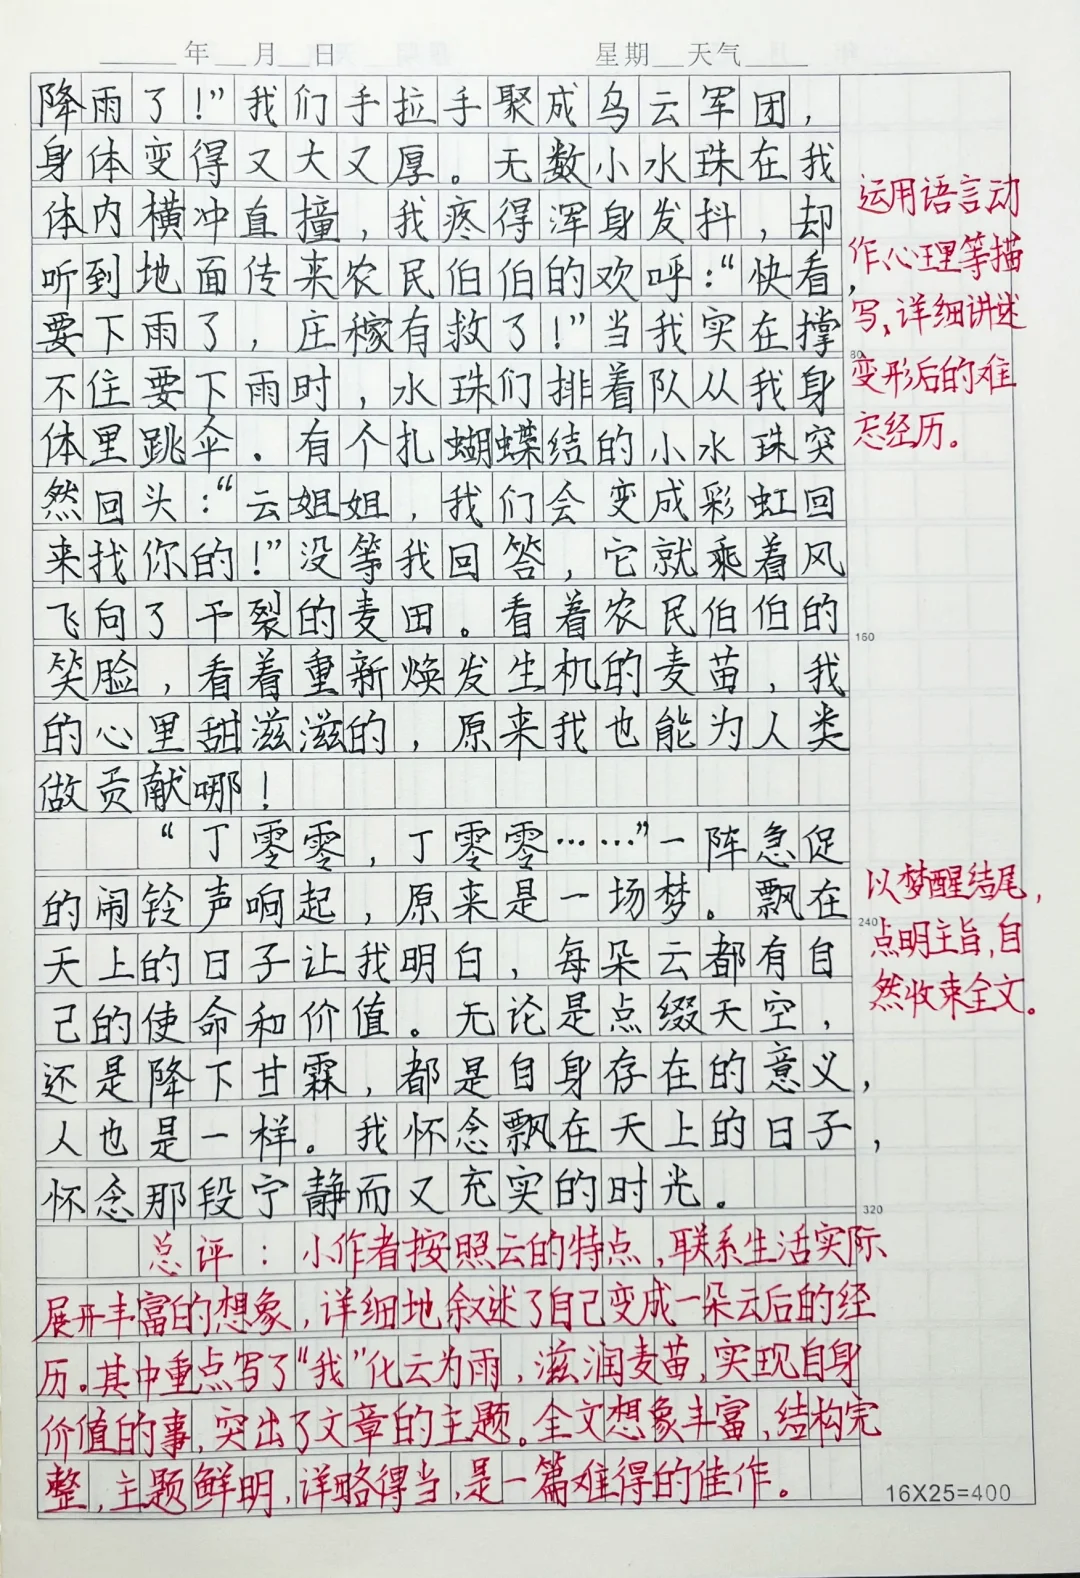 年 月 日 星期 天气
降雨了！”我们手拉手聚成乌云军团，
身体变得又大又厚。无数小水珠在我
体内横冲直撞，我疼得浑身发抖，却
听到地面传来农民伯伯的欢呼：“快看，
要下雨了，庄稼有救了！”当我实在撑
不住要下雨时，水珠们排着队从我身
体里跳伞。有个扎蝴蝶结的小水珠突
然回头：“云姐姐，我们会变成彩虹回
来找你的！”没等我回答，它就乘着风
飞向了干裂的麦田。看着农民伯伯的
笑脸，看着重新焕发生机的麦苗，我
的心里甜滋滋的，原来我也能为人类
做贡献哪！
“丁零零，丁零零……”一阵急促
的闹铃声响起，原来是一场梦。飘在
天上的日子让我明白，每朵云都有自
己的使命和价值。无论是点缀天空，
还是降下甘霖，都是自身存在的意义，
人也是一样。我怀念飘在天上的日子，
怀念那段宁静而又充实的时光。
总评：小作者按照云的特点，联系生活实际
展开丰富的想象，详细地叙述了自己变成一朵云后的经
历。其中重点写了“我”化云为雨，滋润麦苗，实现自身
价值的事，突出了文章的主题。全文想象丰富，结构完
整，主题鲜明，详略得当，是一篇难得的佳作。
运用语言动
作、心理等描
写，详细讲述
变形后的难
忘经历。
以梦醒结尾，
点明主旨，自
然收束全文。
80
160
240
320
16X25=400